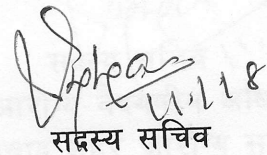 11.1.18
सदस्य सचिव